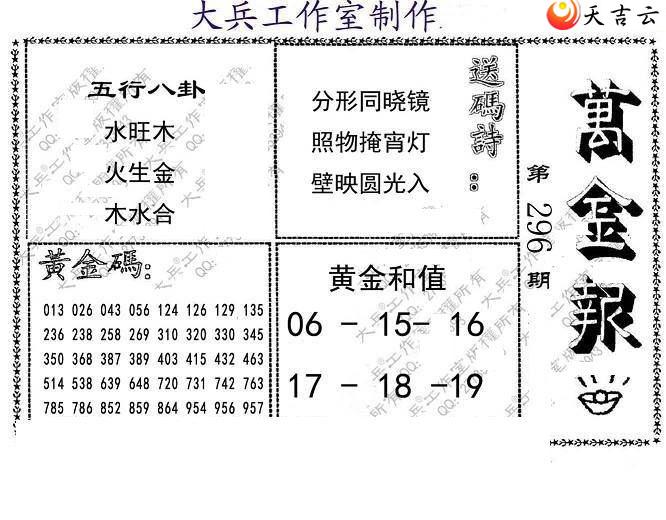 大兵工作室制作.
天吉云
五行八卦
水旺木
火生金
木水合
送碼詩:
分形同晓镜
照物掩宵灯
壁映圆光入
萬金報
第296期
黃金碼:
013 026 043 056 124 126 129 135
236 238 258 269 310 320 330 345
350 368 387 389 403 415 432 463
514 538 639 648 720 731 742 763
785 786 852 859 864 954 956 957
黄金和值
06 - 15- 16
17 - 18 -19